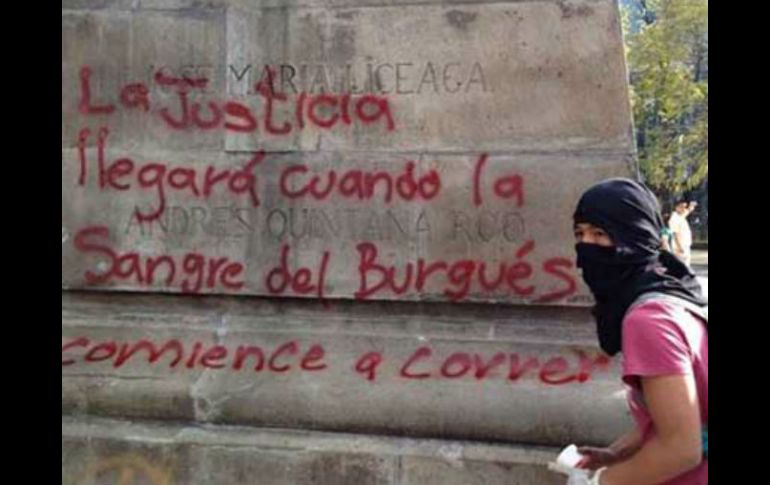 JOSE MARIA LICEAGA
La Justicia
llegará cuando la
ANDRES QUINTANA ROO
Sangre del Burgués
comience a correr